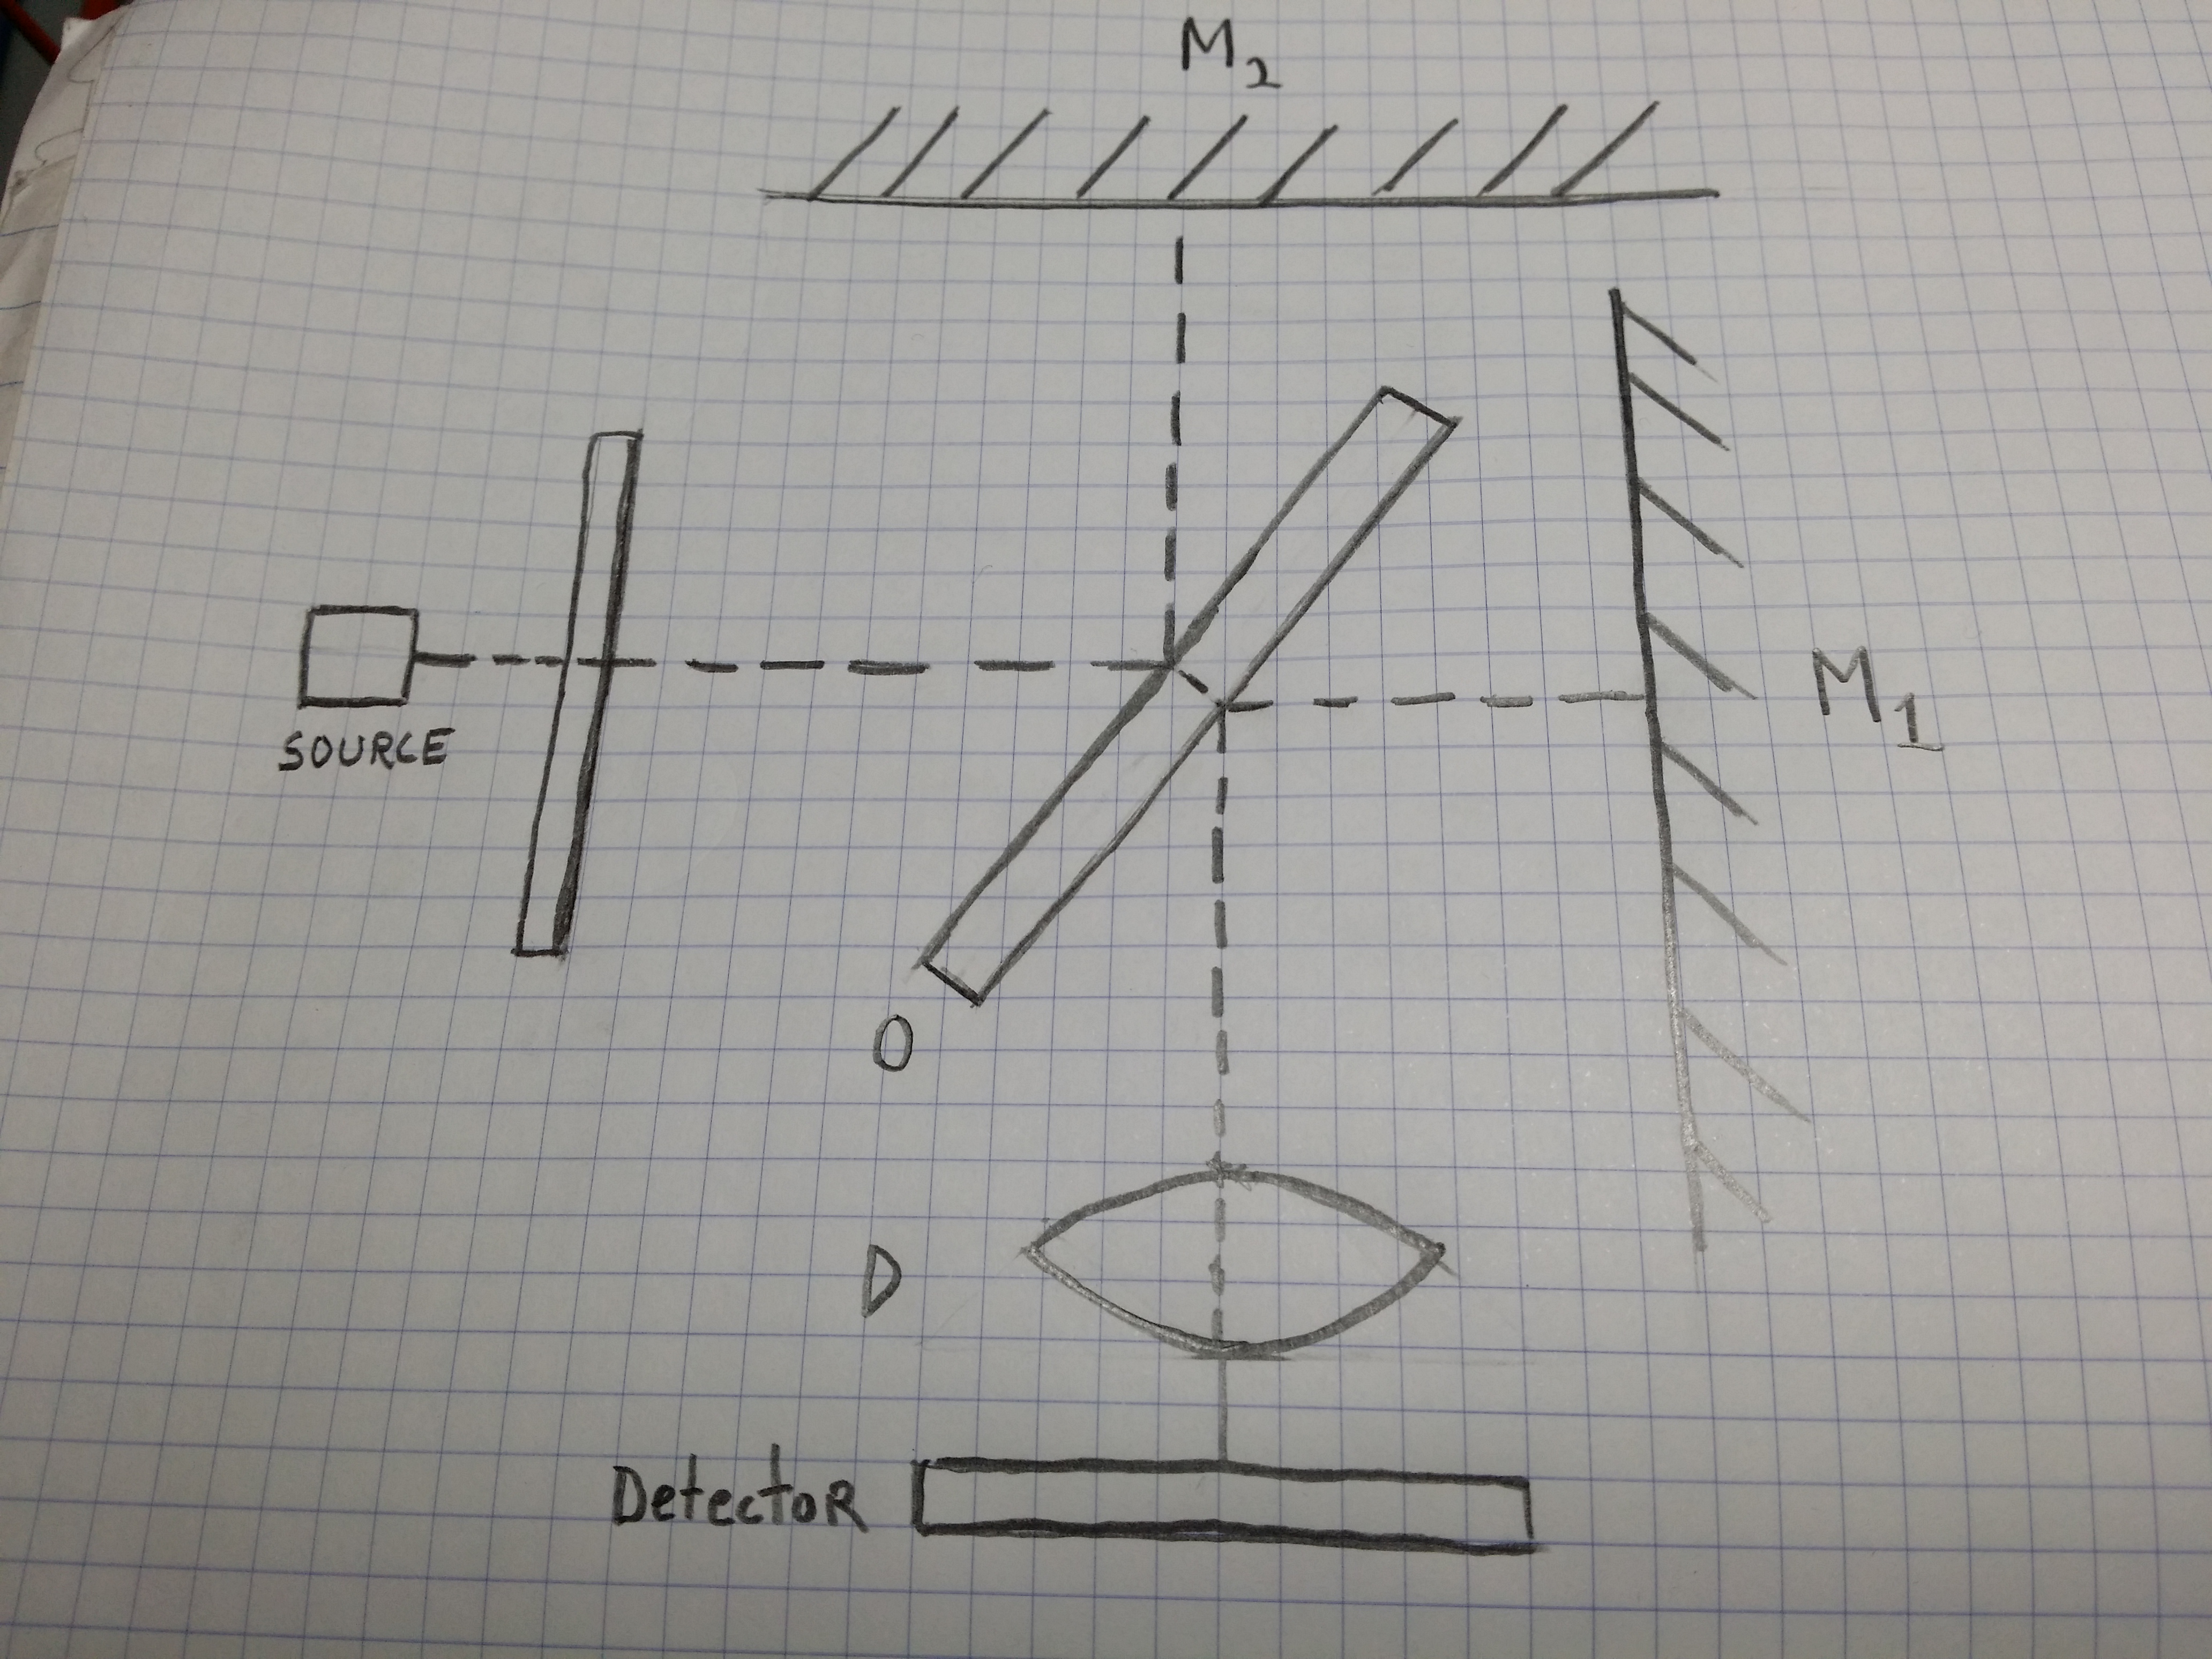 M₂
SOURCE
M₁
O
D
Detector